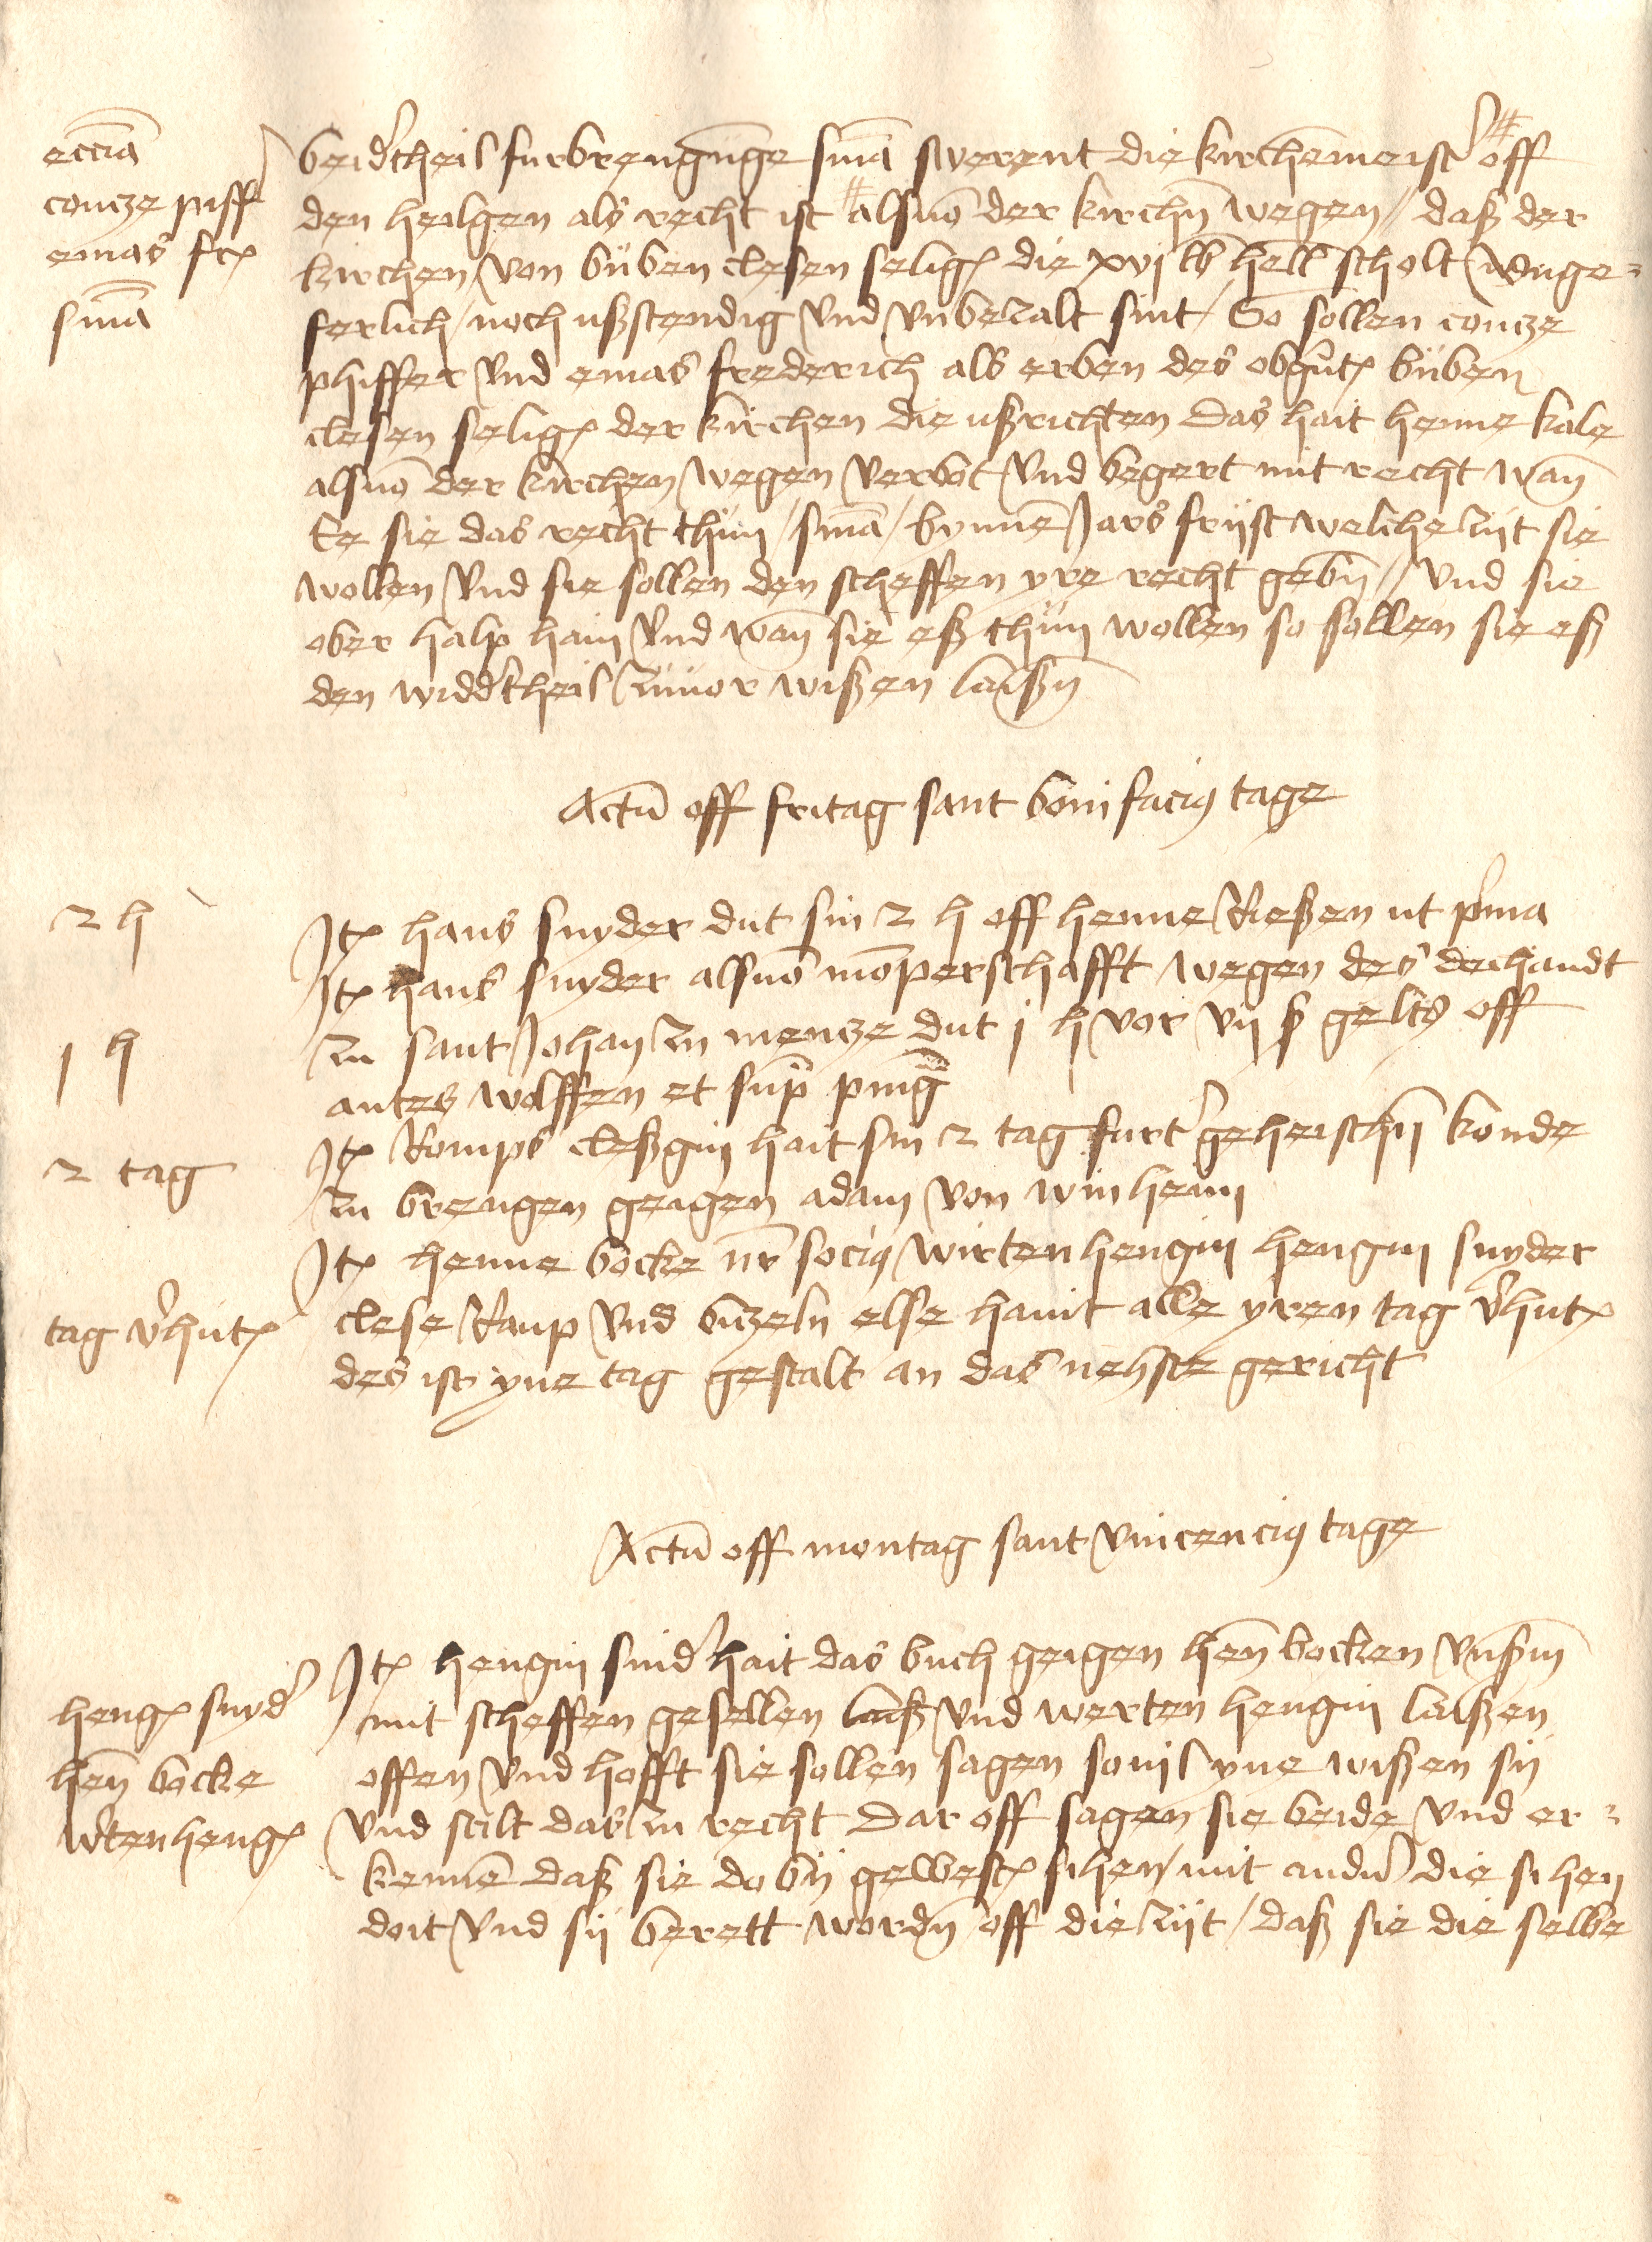 ecc̄ia
contze piff
emas fre
sm̄a
beidʼtheil furbrengūnge sm̄a swerent die kirchēmeistʼ off
den heilgen als recht ist # alsuō der kirchn̄ wegen // daß der
kirchen von büben clesen selige die xvj lb hell scholt vnge=
ferlich / noch ußstendig vnd vnbezalt sint / So sollen contze
phiffer vnd emas frederich als erben des obgnte büben
clesen selige der kirchen die ußrichten Das hait henne kale
alsuō der kirchen wegen verbot vnd begert mit recht wan̄
Ee sie das recht thün / sm̄a / bynnē Jars friist welche zijt sie
wollen vnd sie sollen den scheffen yre recht gebn̄ // vnd sie
ober halp hain vnd wan̄ sie eß thün wollen so sollen sie eß
den widdʼtheil zuuor wißen laißn̄
Actū off fritag sant bonifacius tage
2 h
Ite hans snyder dut sin 2 h off henne Rießen ut pʼma
Ite hans snyder alsuō mōperschafft wegen des dechandt
1 h
zu sant Johan zu mentze dut j h vor vij ß gelts off
antes wolffen et sup̄ pīnḡ
2 tag
Ite Romps cleßgin hait sin 2 tag furtʼ geheischn̄ konde
zu brengen geigen adam von winheim
Ite henne bocke nr̄ socius wirtenhengin hengin snyder
tag vʼhute
clese Raup vnd bützeln else haint alle yren tag vʼhute
des ist yne tag gestalt an das nehste gericht
Actū off montag sant vincencius tage
henge snydʼ
hen̄ bocke
wʼtenhenge
Ite hengin snidʼ hait das buch geigen hen̄ bocken vnßm̄
mit scheffen gesellen laiß vnd werten hengin laißen
offen vnd hofft sie sollen sagen souil yne wißen sij
vnd stilt das zu recht Dar off sagen sie beide vnd er=
kennē daß sie do bij geweste sihen / mit andnʼ die sihen
doit vnd sij berett wordn̄ off die zijt / daß sie die selbe